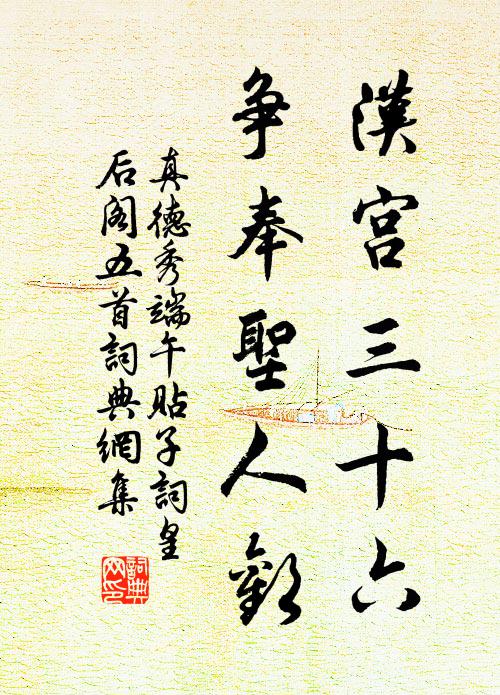 漢宮三十六
争奉聖人歡
真德秀端午貼子詞皇
后閣五首詞典網集
詞典
网印